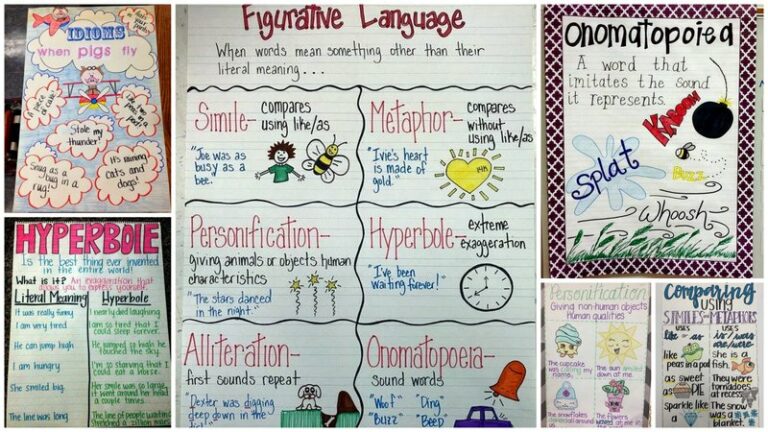 IDIOMS
when pigs fly
A piece of cake
Stole my
thunder!
Snug as a
bug in a
rug!
It's raining
cats and
dogs!
HYPERBOLE
Is the best thing ever invented
in the entire world!
What is it? An exaggeration that
Literal Meaning
Hyperbole
It was really funny
I nearly died laughing.
I am very tired
I am so tired that I
could sleep forever.
He can jump high
He jumped so high he
touched the sky.
I am hungry
I'm so starving that I
could eat a horse.
She smiled big.
Her smile was so large,
it went around her head
a couple times.
The line was long
The line of people waiting
stretched a zillion miles
Figurative Language
When words mean something other than their
literal meaning...
Simile- compares
using like/as
"Joe was as
busy as a
bee."
Metaphor- compares
without
using like/as
"Ivie's heart
is made of
gold."
14K
Personification-
giving animals or objects human
characteristics
"The stars danced
in the night."
Hyperbole- extreme
exaggeration
"I've been
waiting forever!"
Alliteration-
first sounds repeat
"Dexter was digging
deep down in the
Onomatopoeia-
sound words
"Woof" "Ding"
"Buzz" "Beep"
Onomatopoeia
A word that
imitates the sound
it represents.
KABOOM
Splat
BUZZ
Whoosh
Personification
Giving non-human objects
Human qualities
The cupcake
was calling my
name.
The sun smiled
down at me.
The snowflakes
The flowers
waved at me in
Comparing
using
SIMILES-METAPHORS
USES
like - as
USES
is / was
are/were
like peas in a pod
She is a
fish.
as sweet
as PIE
They were
tornadoes
at recess.
sparkle like
The snow
was a
blanket.